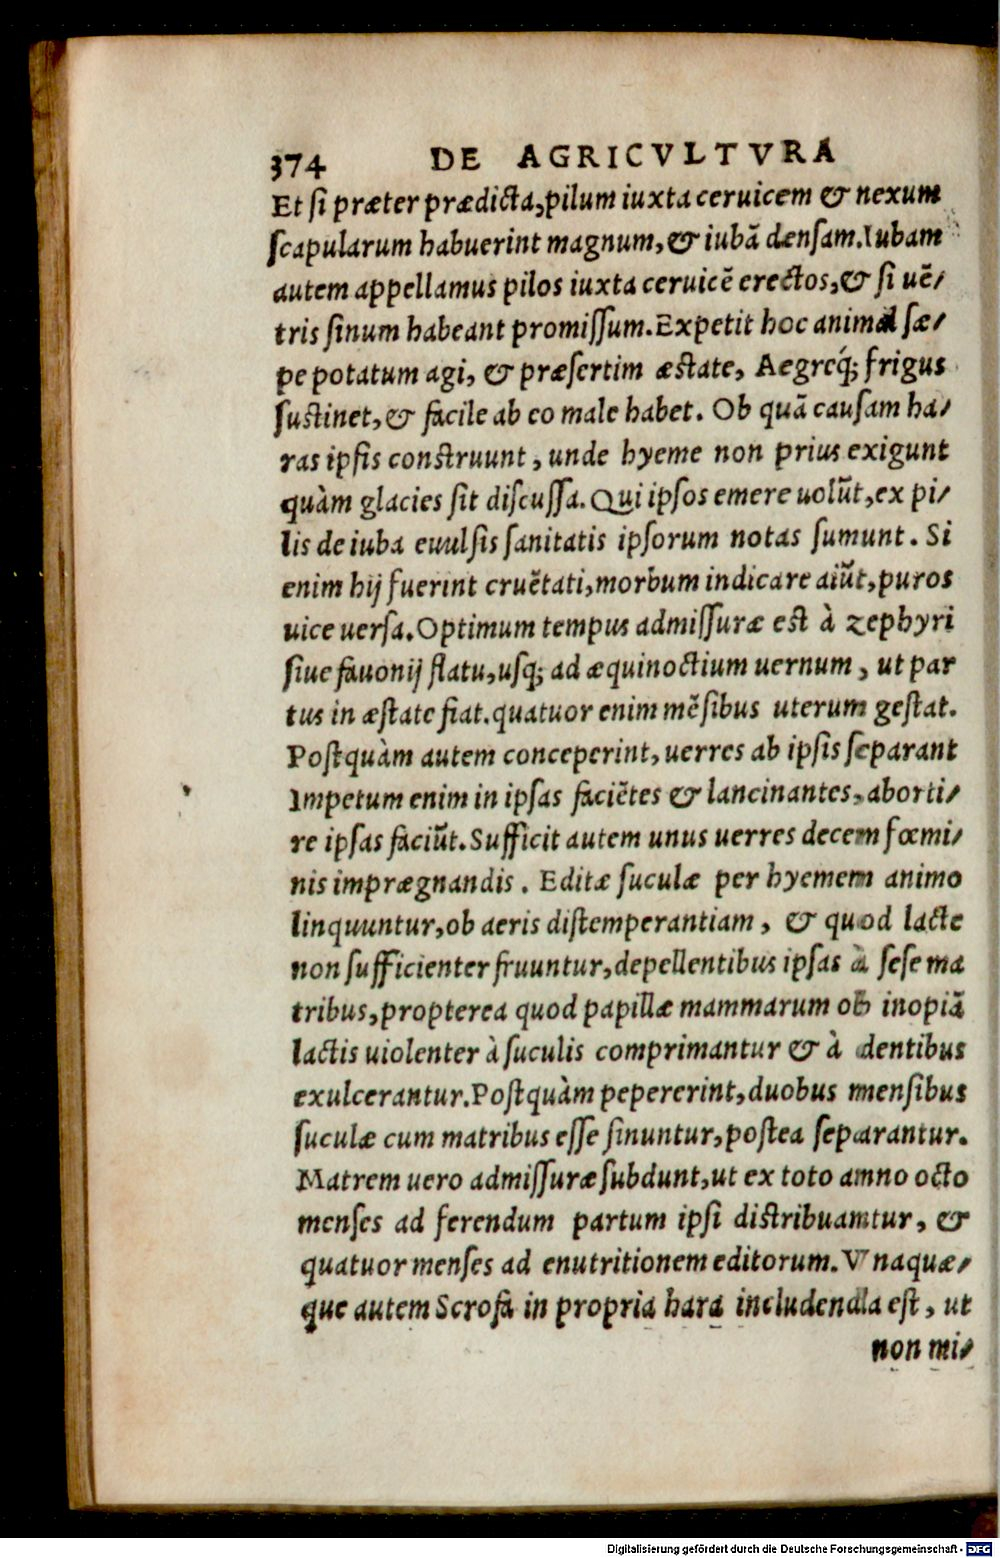 374 DE AGRICVLTVRA
Et ſi præter prædicta, pilum iuxta ceruicem & nexum
ſcapularum habuerint magnum, & iubā denſam. Iubam
autem appellamus pilos iuxta ceruicē erectos, & ſi uē/
tris ſinum habeant promiſſum. Expetit hoc animal ſæ/
pe potatum agi, & præſertim æſtate, Aegreq́; frigus
ſuſtinet, & facile ab eo male habet. Ob quā cauſam ha/
ras ipſis conſtruunt, unde hyeme non prius exigunt
quàm glacies ſit diſcuſſa. Qui ipſos emere uolūt, ex pi/
lis de iuba euulſis ſanitatis ipſorum notas ſumunt. Si
enim hij fuerint cruētati, morbum indicare aiūt, puros
uice uerſa. Optimum tempus admiſſuræ eſt à zephyri
ſiue fauonij flatu, uſq; ad æquinoctium uernum, ut par
tus in æſtate fiat. quatuor enim mēſibus uterum geſtat.
Poſtquàm autem conceperint, uerres ab ipſis ſeparant
Impetum enim in ipſas faciētes & lancinantes, aborti/
re ipſas faciūt. Sufficit autem unus uerres decem fœmi/
nis imprægnandis. Editæ ſuculæ per hyemem animo
linquuntur, ob aeris diſtemperantiam, & quod lacte
non ſufficienter fruuntur, depellentibus ipſas à ſeſe ma
tribus, propterea quod papillæ mammarum ob inopiā
lactis uiolenter à ſuculis comprimantur & à dentibus
exulcerantur. Poſtquàm pepererint, duobus menſibus
ſuculæ cum matribus eſſe ſinuntur, poſtea ſeparantur.
Matrem uero admiſſuræ ſubdunt, ut ex toto anno octo
menſes ad ferendum partum ipſi diſtribuantur, &
quatuor menſes ad enutritionem editorum. Vnaquæ/
que autem Scrofa in propria hara includenda eſt, ut
non mi/
Digitalisierung gefördert durch die Deutsche Forschungsgemeinschaft - DFG